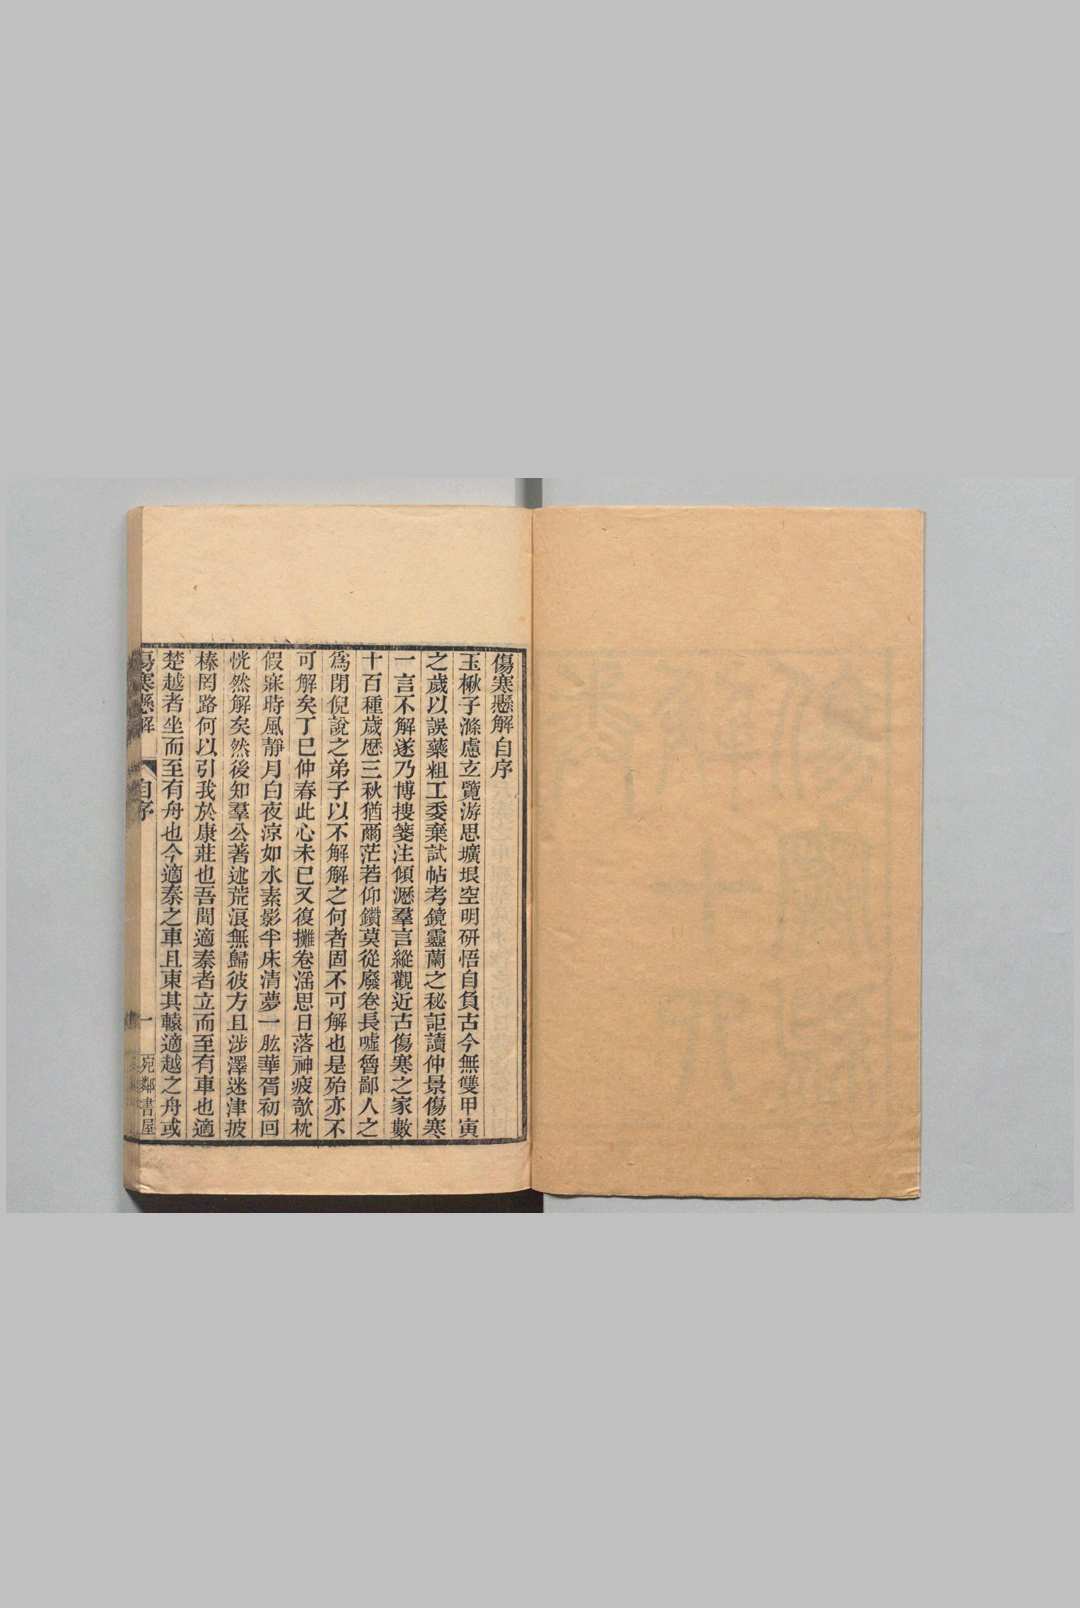 傷寒懸解自序
玉楸子滌慮玄覽游思壙垠空明研悟自負古今無雙甲寅
之歲以誤藥粗工委棄試帖考鏡靈蘭之秘詎讀仲景傷寒
一言不解遂乃博搜箋注傾瀝羣言縱觀近古傷寒之家數
十百種歲歷三秋猶爾茫若仰鑽莫從廢卷長噓曾鄙人之
爲閉倪說之弟子以不解解之何者固不可解也是殆亦不
可解矣丁巳仲春此心未已又復攤卷淫思日落神疲欹枕
假寐時風靜月白夜涼如水素影半床清夢一肱華胥初回
恍然解矣然後知羣公著述荒浪無歸彼方且涉澤迷津披
榛罔路何以引我於康莊也吾聞適秦者立而至有車也適
楚越者坐而至有舟也今適秦之車且東其轅適越之舟或
傷寒懸解
自序
一
宛鄰書屋